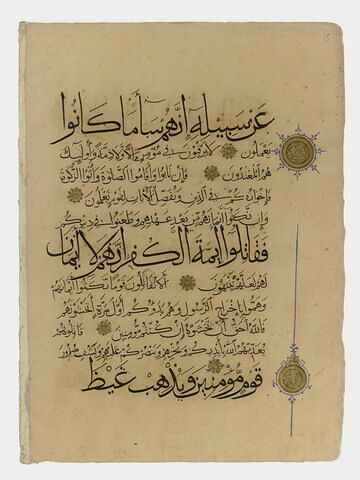 عن سبيله إنهم ساء ما كانوا
يعملون لا يرقبون في مؤمن إلا ولا ذمة وأولئك
هم المعتدون فإن تابوا وأقاموا الصلوة وآتوا الزكوة
فإخوانكم في الدين ونفصل الآيات لقوم يعلمون
وإن نكثوا أيمانهم من بعد عهدهم وطعنوا في دينكم
فقاتلوا أئمة الكفر إنهم لا أيمان
لهم لعلهم ينتهون ألا تقاتلون قوما نكثوا أيمانهم
وهموا بإخراج الرسول وهم بدؤكم أول مرة أتخشونهم
فالله أحق أن تخشوه إن كنتم مؤمنين قاتلوهم
يعذبهم الله بأيديكم ويخزهم وينصركم عليهم ويشف صدور
قوم مؤمنين ويذهب غيظ